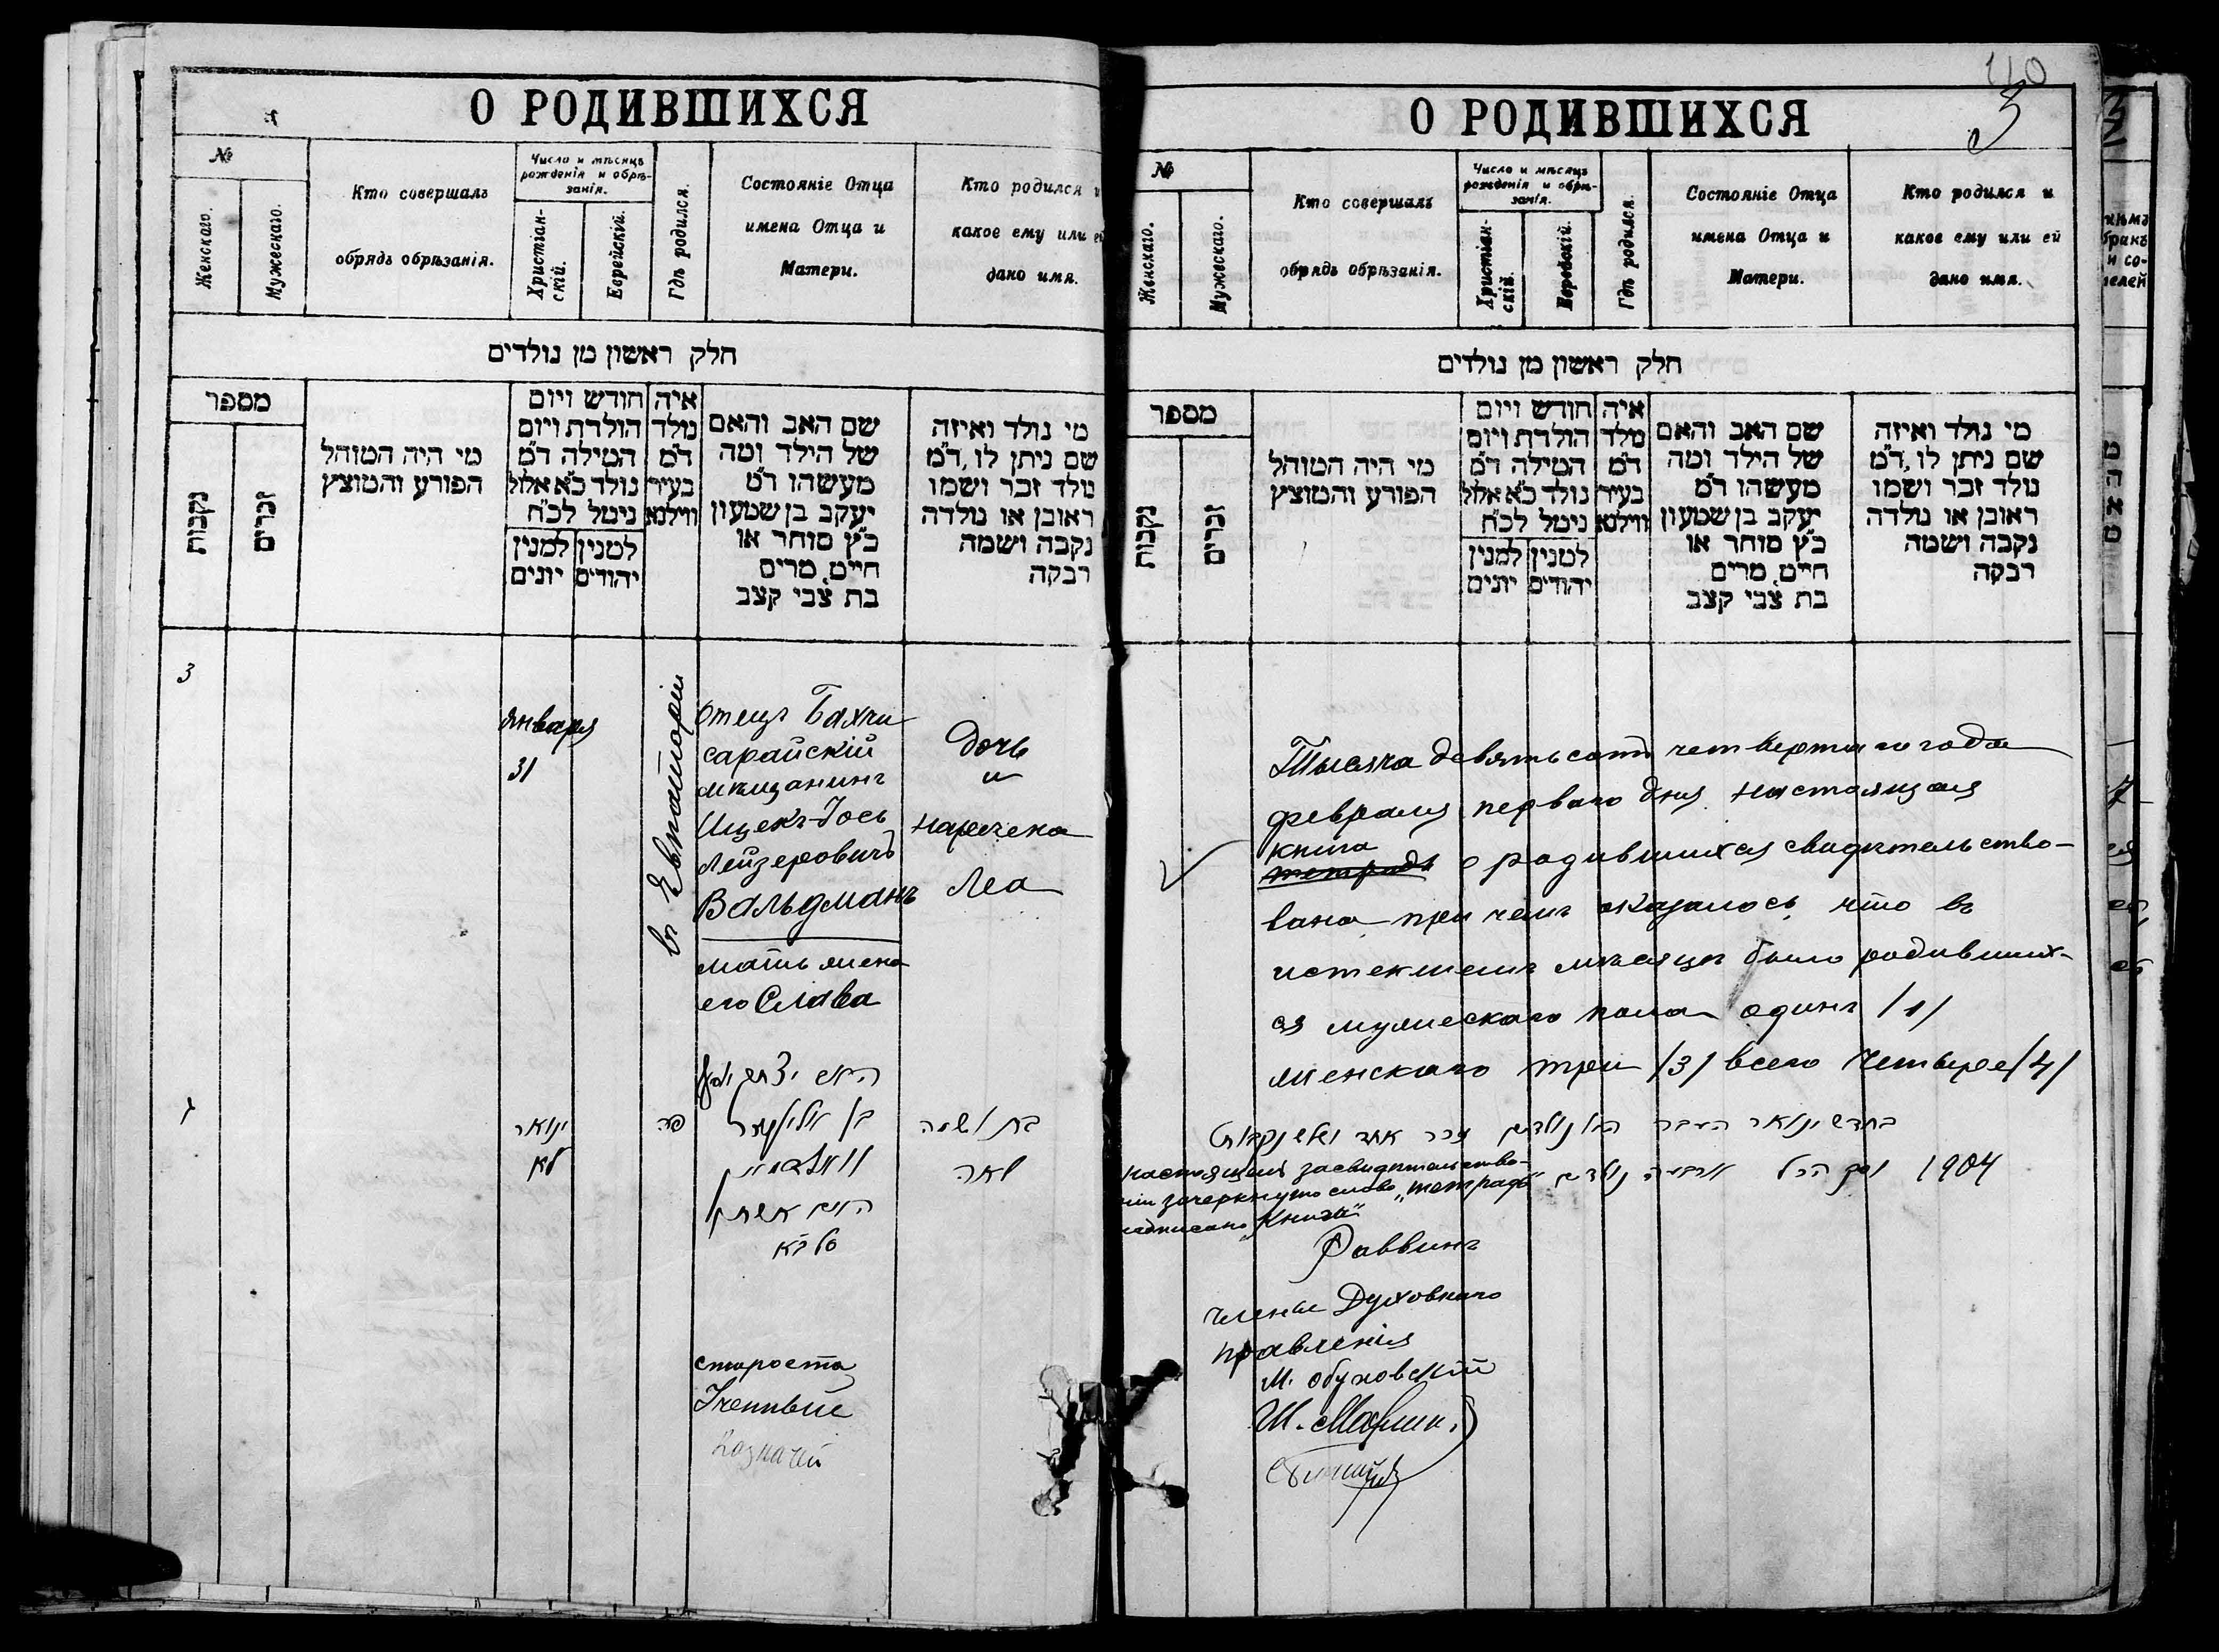 О РОДИВШИХСЯ
№
Женскаго.
Мужескаго.
Кто совершалъ
обрядъ обрѣзанія.
Число и мѣсяцъ
рожденія и обрѣ-
занія.
Христіан-
скій.
Еврейскій.
Гдѣ родился.
Состояніе Отца
имена Отца и
Матери.
Кто родился и
какое ему или ей
дано имя.
חלק ראשון מן נולדים
מספר
נקבות
זכרים
מי היה המוהל
הפורע והמוצץ
חודש ויום
הולדת ויום
המילה ד״מ
נולד כ״א אלול
נימל לכ״ח
למנין למנין
יהודים יונים
איה
נולד
ד״מ
בעיר
ווילנא
שם האב והאם
של הילד ומה
מעשהו ד״מ
יעקב בן שמעון
כ״ץ סוחר או
חייט, מרים
בת צבי קצב
מי נולד ואיזה
שם ניתן לו, ד״מ
נולד זכר ושמו
ראובן או נולדה
נקבה ושמה
רבקה
3
Января
31
въ Евпаторіи
Отецъ Бахчи
сарайскій
мѣщанинъ
Ицекъ-Іось
Лейзеровичъ
Вальдманъ
мать жена
его Слава
дочь
и
наречена
Леа
ג
ינואר
לא
פה
האב יצחק יוסף
בן אליעזר
וואלדמאן
האם אשתו
סלאווא
בת ושמה
לאה
староста
Ученный
Казначей
О РОДИВШИХСЯ
40
3
№
Женскаго.
Мужескаго.
Кто совершалъ
обрядъ обрѣзанія.
Число и мѣсяцъ
рожденія и обрѣ-
занія.
Христіан-
скій.
Еврейскій.
Гдѣ родился.
Состояніе Отца
имена Отца и
Матери.
Кто родился и
какое ему или ей
дано имя.
חלק ראשון מן נולדים
מספר
נקבות
זכרים
מי היה המוהל
הפורע והמוצץ
חודש ויום
הולדת ויום
המילה ד״מ
נולד כ״א אלול
נימל לכ״ח
למנין למנין
יהודים יונים
איה
נולד
ד״מ
בעיר
ווילנא
שם האב והאם
של הילד ומה
מעשהו ד״מ
יעקב בן שמעון
כ״ץ סוחר או
חייט, מרים
בת צבי קצב
מי נולד ואיזה
שם ניתן לו, ד״מ
נולד זכר ושמו
ראובן או נולדה
נקבה ושמה
רבקה
Тысяча девятьсотъ четвертаго года
февраля перваго дня настоящая
книга
тетрадь о родившихся свидѣтельство-
вана при чемъ оказалось, что въ
истекшемъ мѣсяцѣ было родивших-
ся мужескаго пола одинъ /1/
женскаго три /3/ всего четыре /4/
בחדש ינואר העבר נולדים זכר אחד ושלש נקבות
סך הכל ארבעה נולדים 1904
настоящемъ засвидѣтельство-
ніи зачеркнуто слово „тетрадь"
надписано „книга"
Раввинъ
члены Духовнаго
правленія
М. Обуховскій